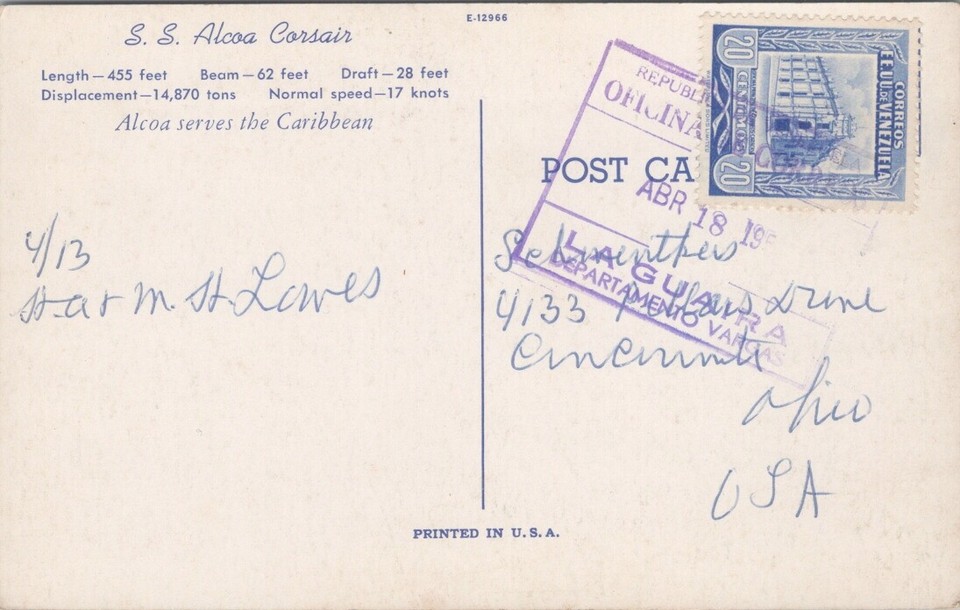 E-12966
S. S. Alcoa Corsair
Length—455 feet Beam—62 feet Draft—28 feet
Displacement—14,870 tons Normal speed—17 knots
Alcoa serves the Caribbean
POST CA
REPUBLI
OFICINA
ABR 18 195
LA GUAIRA
DEPARTAMENTO VARGAS
CORREOS
EE.UU. DE VENEZUELA
20 CENTIMOS 20
4/13
M. H. Lowes
4133
Drive
Cincinnati
Ohio
USA
PRINTED IN U.S.A.